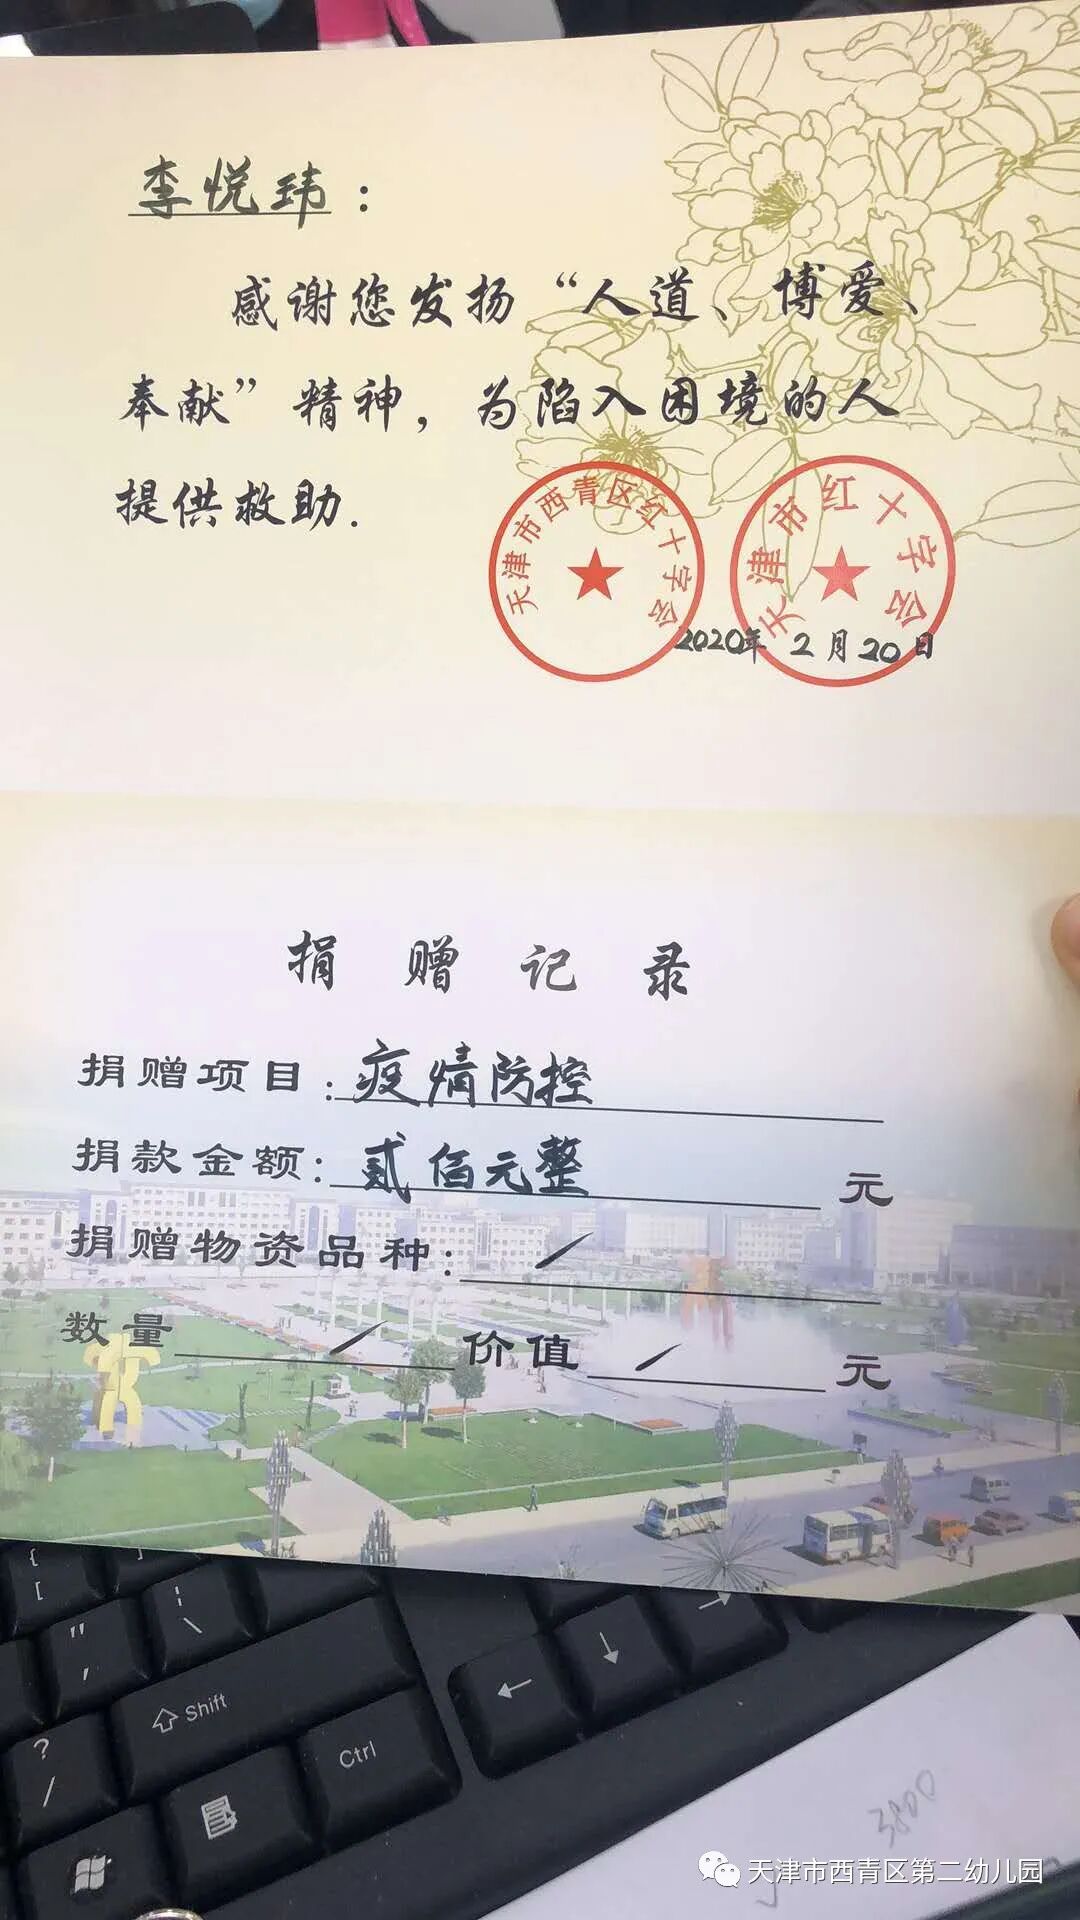 李悦玮：
感谢您发扬“人道、博爱、
奉献”精神，为陷入困境的人
提供救助.
天津市西青区红十字会
天津市红十字会
2020年 2月20日
捐赠记录
捐赠项目：疫情防控
捐款金额：贰佰元整 元
捐赠物资品种：/
数量 / 价值 / 元
{
[
"
'
|
\
? 
/
Shift
Ctrl
←
↓
→
3800
天津市西青区第二幼儿园